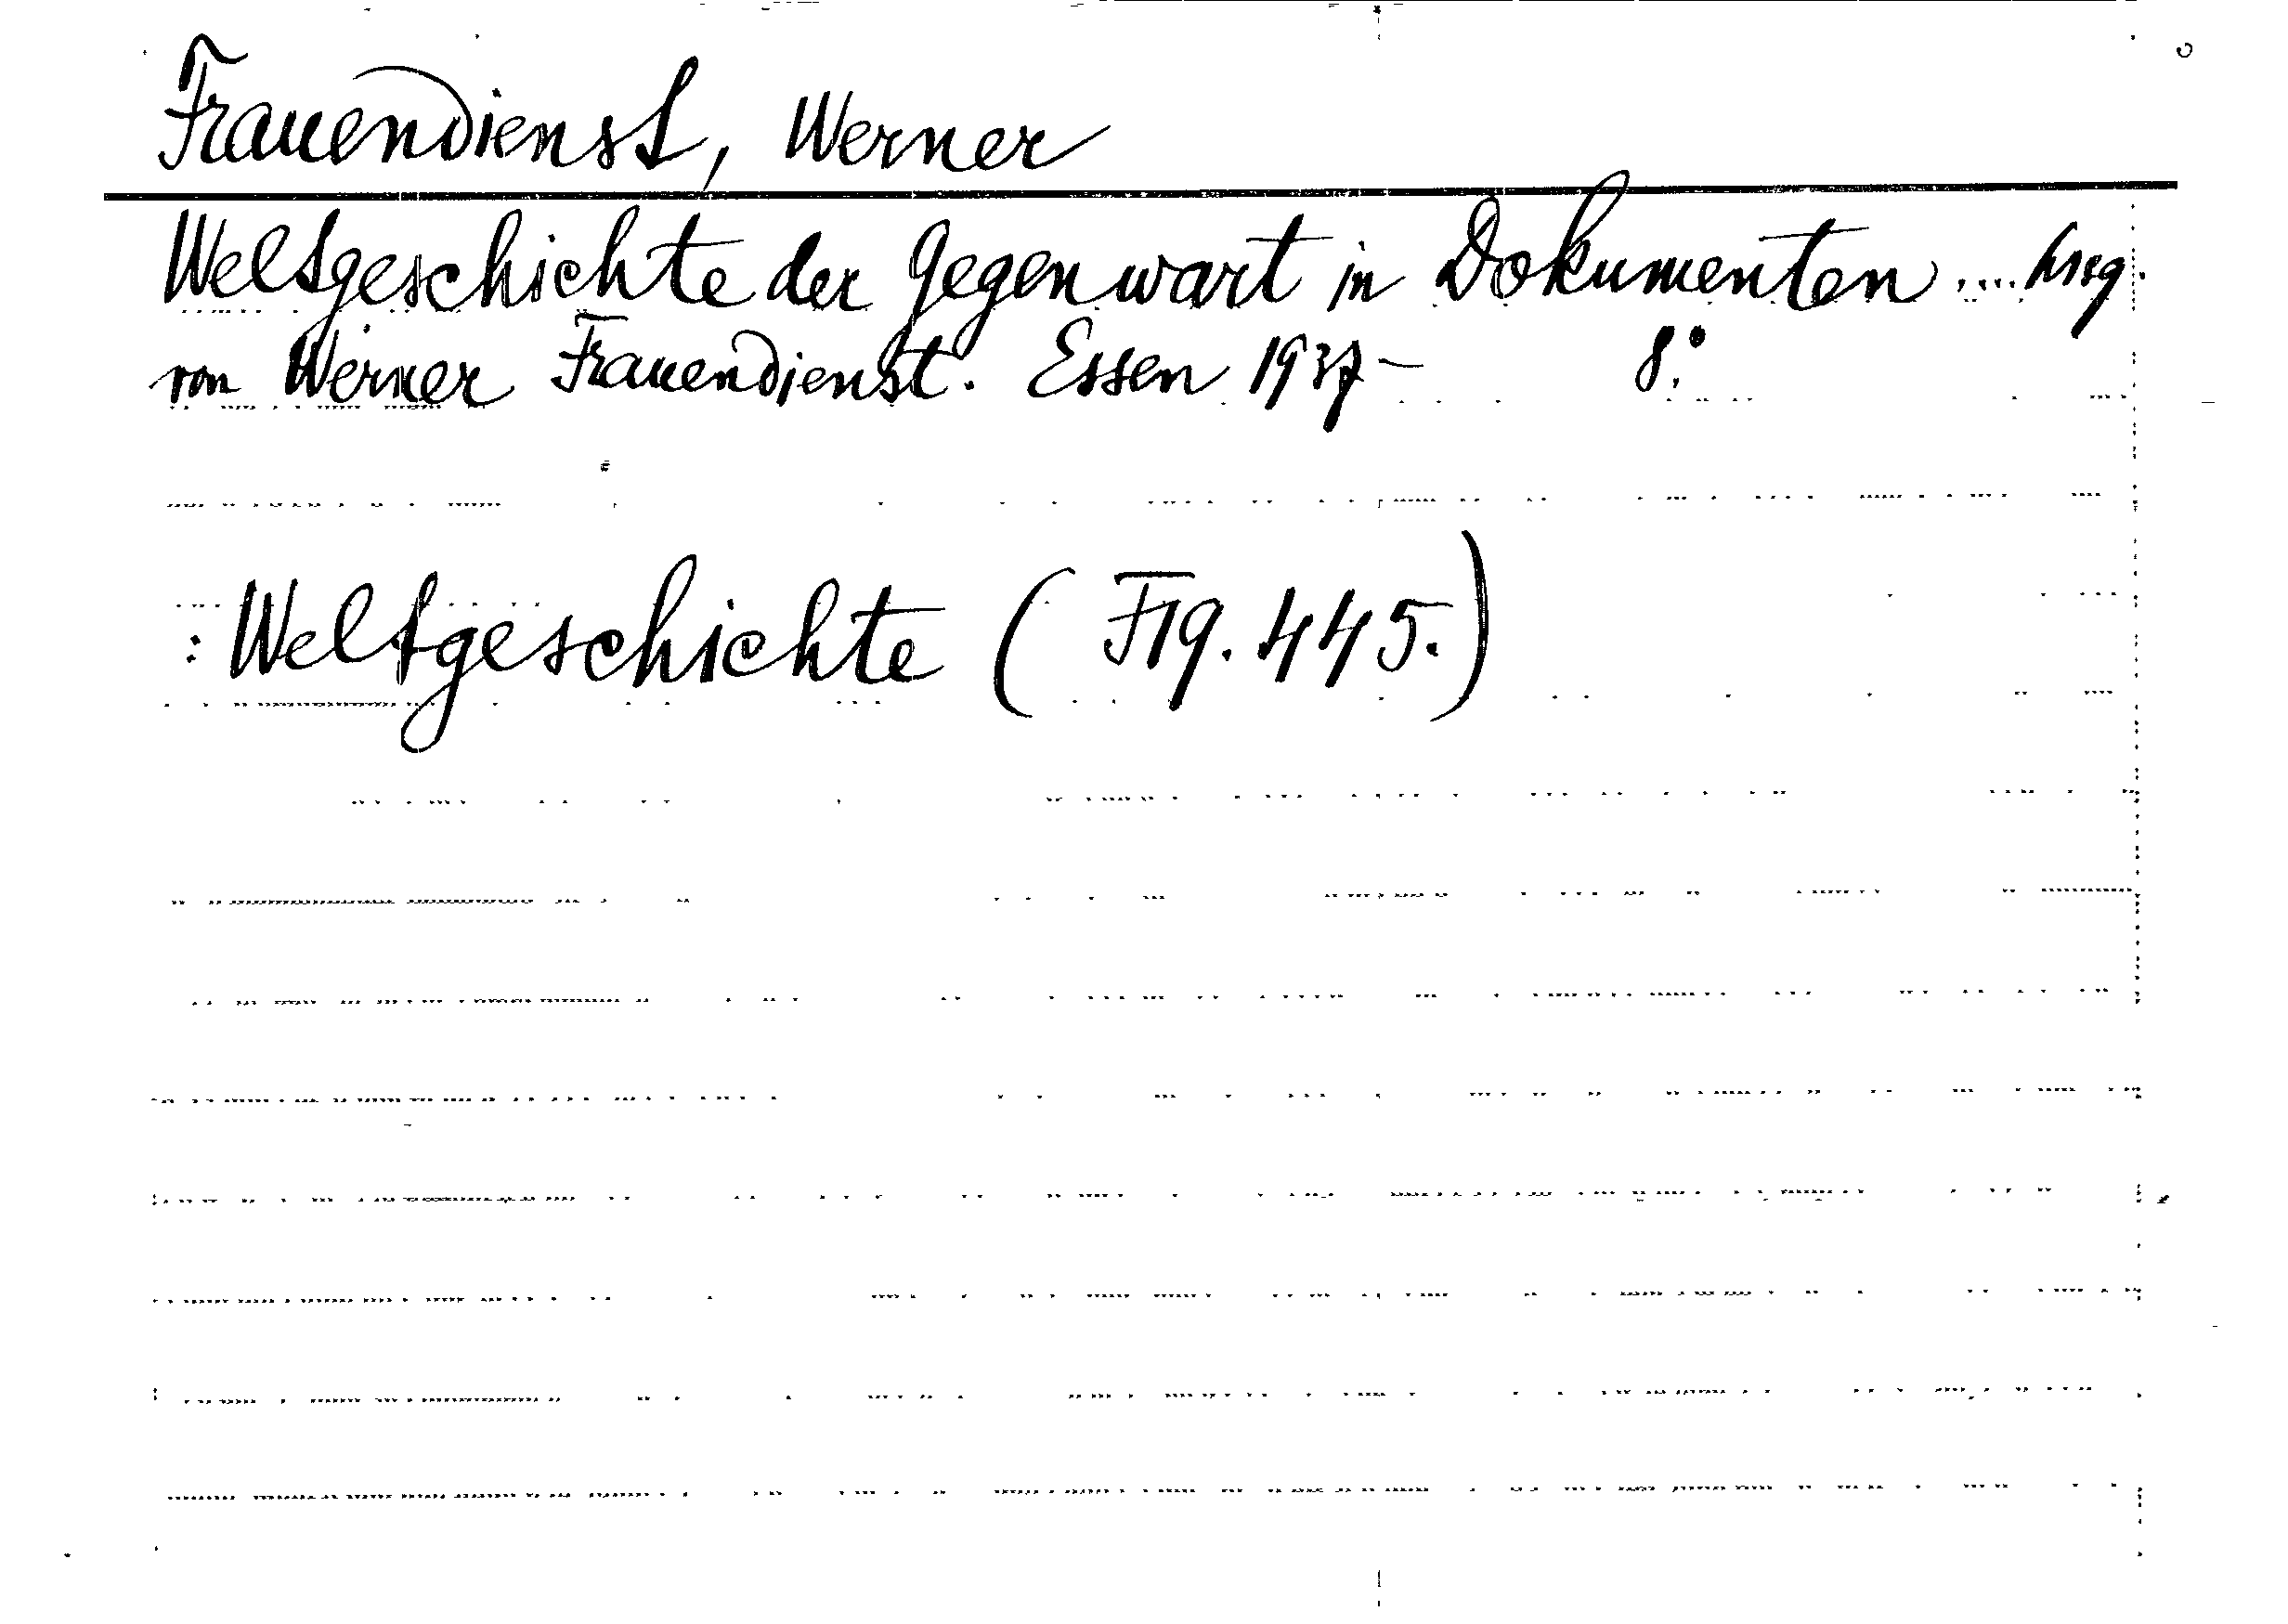 Frauendienst, Werner
Weltgeschichte der Gegenwart in Dokumenten .... hrsg.
von Werner Frauendienst. Essen 1937- 8.°
: Weltgeschichte ( F19. 445.)